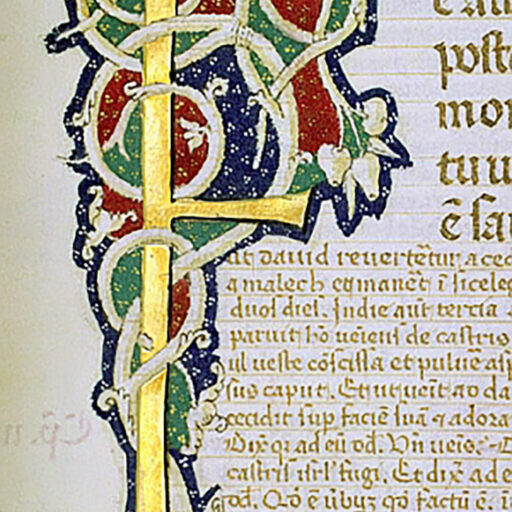 F
post
mor
tuu
ē sa
ut dauid reuertet̄ur a ced
q malech et maneret̄ ī siceleg
duos dies. In die aut̄ tercia
paruit ho ueiens de castris
ul ueste cōscissa et puluē asp
sus caput. Et ut ueit ad da
cecidit sup faciē suā q adora
Dix̄ q ad eū dd. Vn̄ ueis. D
castris isrl fugi. Et dix̄ ad e
dd. Qd̄ ē ūbuȝ qd̄ factū ē. ī